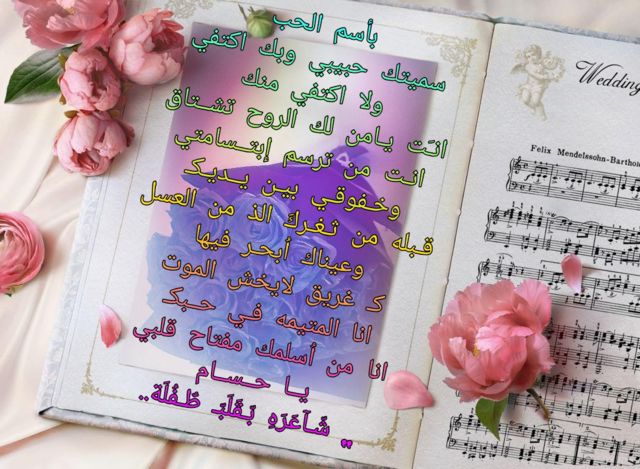 بأسم الحب
سميتك حبيبي وبك اكتفي
ولا اكتفي منك
انت يامن لك الروح تشتاق
انت من ترسم إبتسامتي
وخفوقي بين يديك
قبله من ثغرك الذ من العسل
وعيناك أبحر فيها
كـ غريق لايخش الموت
انا المتيمه في حبك
انا من أسلمك مفتاح قلبي
يا حسام
,, شَآعَرَهِ بَقَلَبَ طَفُلَة..
Wedding
Felix Mendelssohn-Barthol